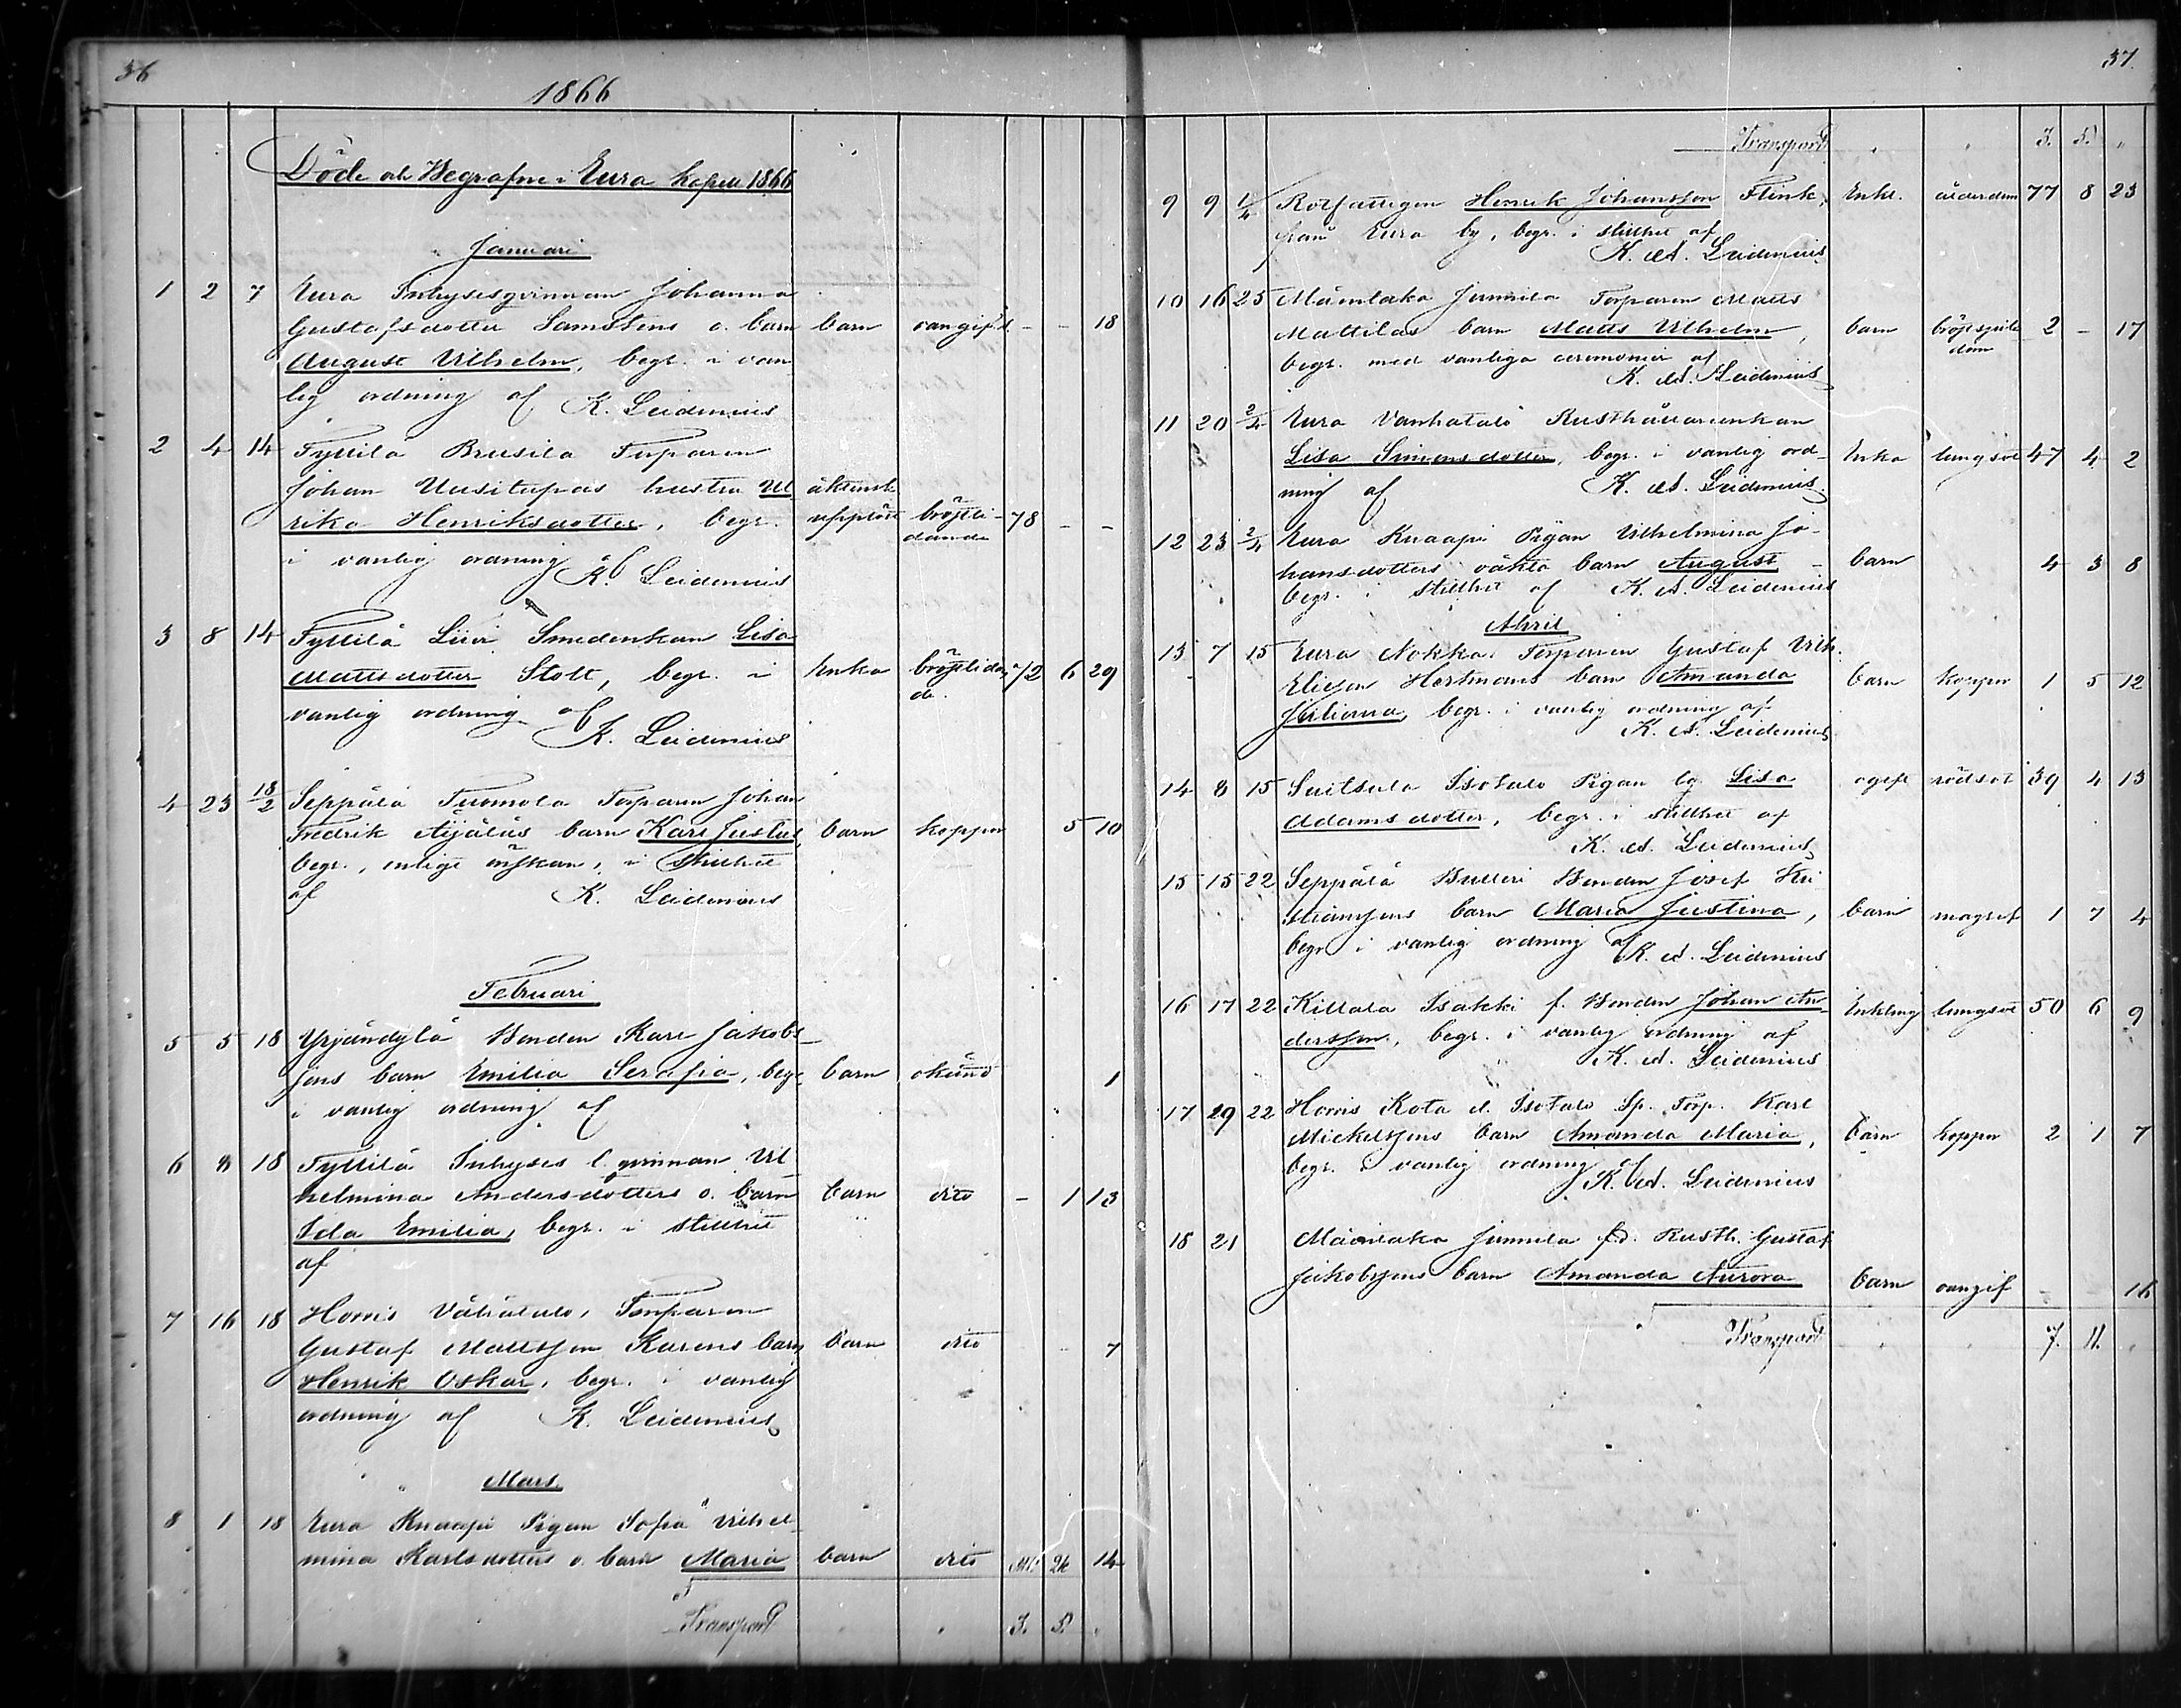 36
1866
Döde och Begrafne i Eura kapell 1866
Januari
1 2 7 Eura Inhysesqvinnan Johanna
Gustafsdotter Samstens o. barn barn oangifd - - 18
August Vilhelm, begr. i van
lig ordning af K. Leidenius
2 4 14 Fyttilä Brusila Torparen
Johan Uusitupas hustru Ul äktensk
rika Henriksdotter, begr. upplöst bröstli- 78 - -
dande
i vanlig ordning af K. Leidenius
3 8 14 Fyttilä Lievi Smedenkan Lisa
Mattsdotter Stolt, begr. i Enka bröstlidan 72 6 29
de.
vanlig ordning af
K. Leidenius
4 23 18/2 Seppälä Tuomola Torparen Johan
Fredrik Äijäläs barn Karl Justus, barn koppor 5 10
begr., enligt önskan, i stillhet
af K. Leidenius
Februari
5 5 18 Yrjändylä Bonden Karl Jakobs-
sons barn Emilia Serafia, begr barn okänd 1
i vanlig ordning af
6 8 18 Fyttilä Inhyses l. qvinnan Vil
helmina Andersdotters o. barn barn dito - 1 13
Ida Emilia, begr. i stillhet
af
7 16 18 Honis Vähätalo, Torparen
Gustaf Mattsson Karens barn barn dito 7
Henrik Oskar, begr. i vanlig
ordning af K. Leidenius
Mars.
8 1 18 Eura Knaapi Pigan Sofia Vilhel-
mina Karlsdotters o. barn Maria barn dito Mk 2k 14
Transport 3. 5.
37.
Transport 3. 5.
9 9 1/4 Rotfattigen Henrik Johansson Flink, Enkl. ålderdom 77 8 23
från Eura by, begr. i stillhet af
K. Ad. Leidenius
10 16 25 Mannilako Junnila Torparen Matts
Mattilas barn Matts Vilhelm, barn bröstsjuk 2 - 17
dom
begr. med vanliga ceremonier af
K. Ad. Leidenius
11 20 2/4 Eura Vanhatalo Rusthållarenkan
Lisa Simonsdotter, begr. i vanlig ord- Enka lungsot 47 4 2
ning af K. Ad. Leidenius.
12 23 2/4 Eura Knaapi Pigan Vilhelmina Jo-
hansdotters oäkta barn August - barn 4 3 8
begr. i stillhet af K. Ad. Leidenius
April
13 7 15 Eura Nokka Torparen Gustaf Vilh.
Hertmans barn Amanda barn koppor 1 5 12
Juliana, begr. i vanlig ordning af
K. Ad. Leidenius
14 8 15 Suitsula Isotalo Pigan Lisa ogift rödsot 39 4 13
Adamsdotter, begr. i stillhet af
K. Ad. Leidenius
15 15 22 Seppälä Bulleri Bonden Josef Kri
stianssons barn Maria Justina, barn magref 1 7 4
begr i vanlig ordning af K. Ad. Leidenius
16 17 22 Kittala Isakki f. Bonden Johan An- Enkling lungsot 50 6 9
dersson, begr. i vanlig ordning af
K. Ad. Leidenius
17 19 22 Honis Kota Isotalo Sp. Torp. Karl
Mickelssons barn Amanda Maria, barn koppor 2 1 7
begr. i vanlig ordning af
K. Ad. Leidenius
18 21 Mannilako Junnila f.d. Rusth. Gustaf
Jakobssons barn Amanda Aurora barn oangif 16
Transport 7. 11.